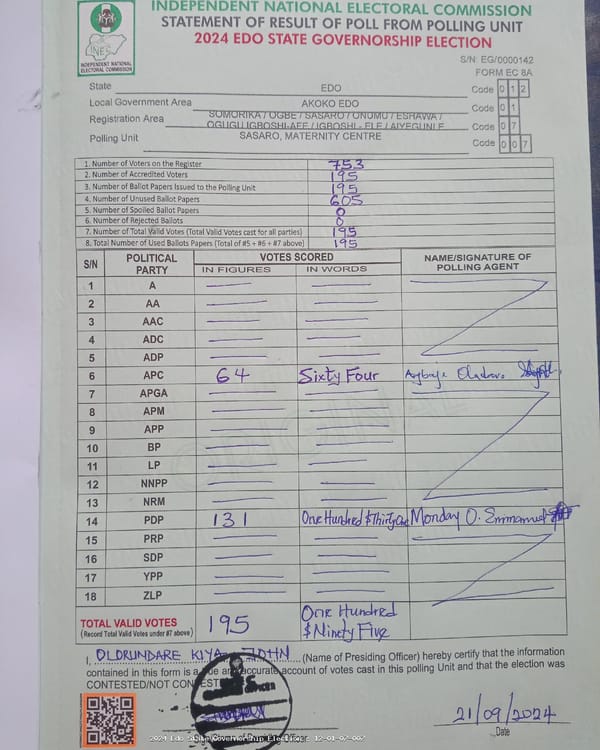 INDEPENDENT NATIONAL ELECTORAL COMMISSION
STATEMENT OF RESULT OF POLL FROM POLLING UNIT
2024 EDO STATE GOVERNORSHIP ELECTION
INEC
INDEPENDENT NATIONAL
ELECTORAL COMMISSION
S/N: EG/0000142
FORM EC 8A
State EDO Code 0 1 2
Local Government Area AKOKO EDO Code 0 1
Registration Area SOMORIKA / OGBE / SASARO / ONUMU / ESHAWA /
OGUGU IGBOSHI-AFE / IGBOSHI - ELE / AIYEGUNLE Code 0 7
Polling Unit SASARO, MATERNITY CENTRE Code 0 0 7
1. Number of Voters on the Register 753
2. Number of Accredited Voters 195
3. Number of Ballot Papers Issued to the Polling Unit 195
4. Number of Unused Ballot Papers 605
5. Number of Spoiled Ballot Papers 0
6. Number of Rejected Ballots 0
7. Number of Total Valid Votes (Total Valid Votes cast for all parties) 195
8. Total Number of Used Ballots Papers (Total of #5 + #6 + #7 above) 195
S/N POLITICAL PARTY VOTES SCORED NAME/SIGNATURE OF POLLING AGENT
IN FIGURES IN WORDS
1 A
2 AA
3 AAC
4 ADC
5 ADP
6 APC 64 Sixty Four
7 APGA
8 APM
9 APP
10 BP
11 LP
12 NNPP
13 NRM
14 PDP 131 One Hundred & Thirty One Monday O. Emmanuel
15 PRP
16 SDP
17 YPP
18 ZLP
TOTAL VALID VOTES 195 One Hundred
(Record Total Valid Votes under #7 above) & Ninety Five
I, OLORUNDARE JOHN (Name of Presiding Officer) hereby certify that the information
contained in this form is a true and accurate account of votes cast in this polling Unit and that the election was
CONTESTED/NOT CONTESTED
21/09/2024
Date
2024 Edo State Governorship Election : 12-01-07-007